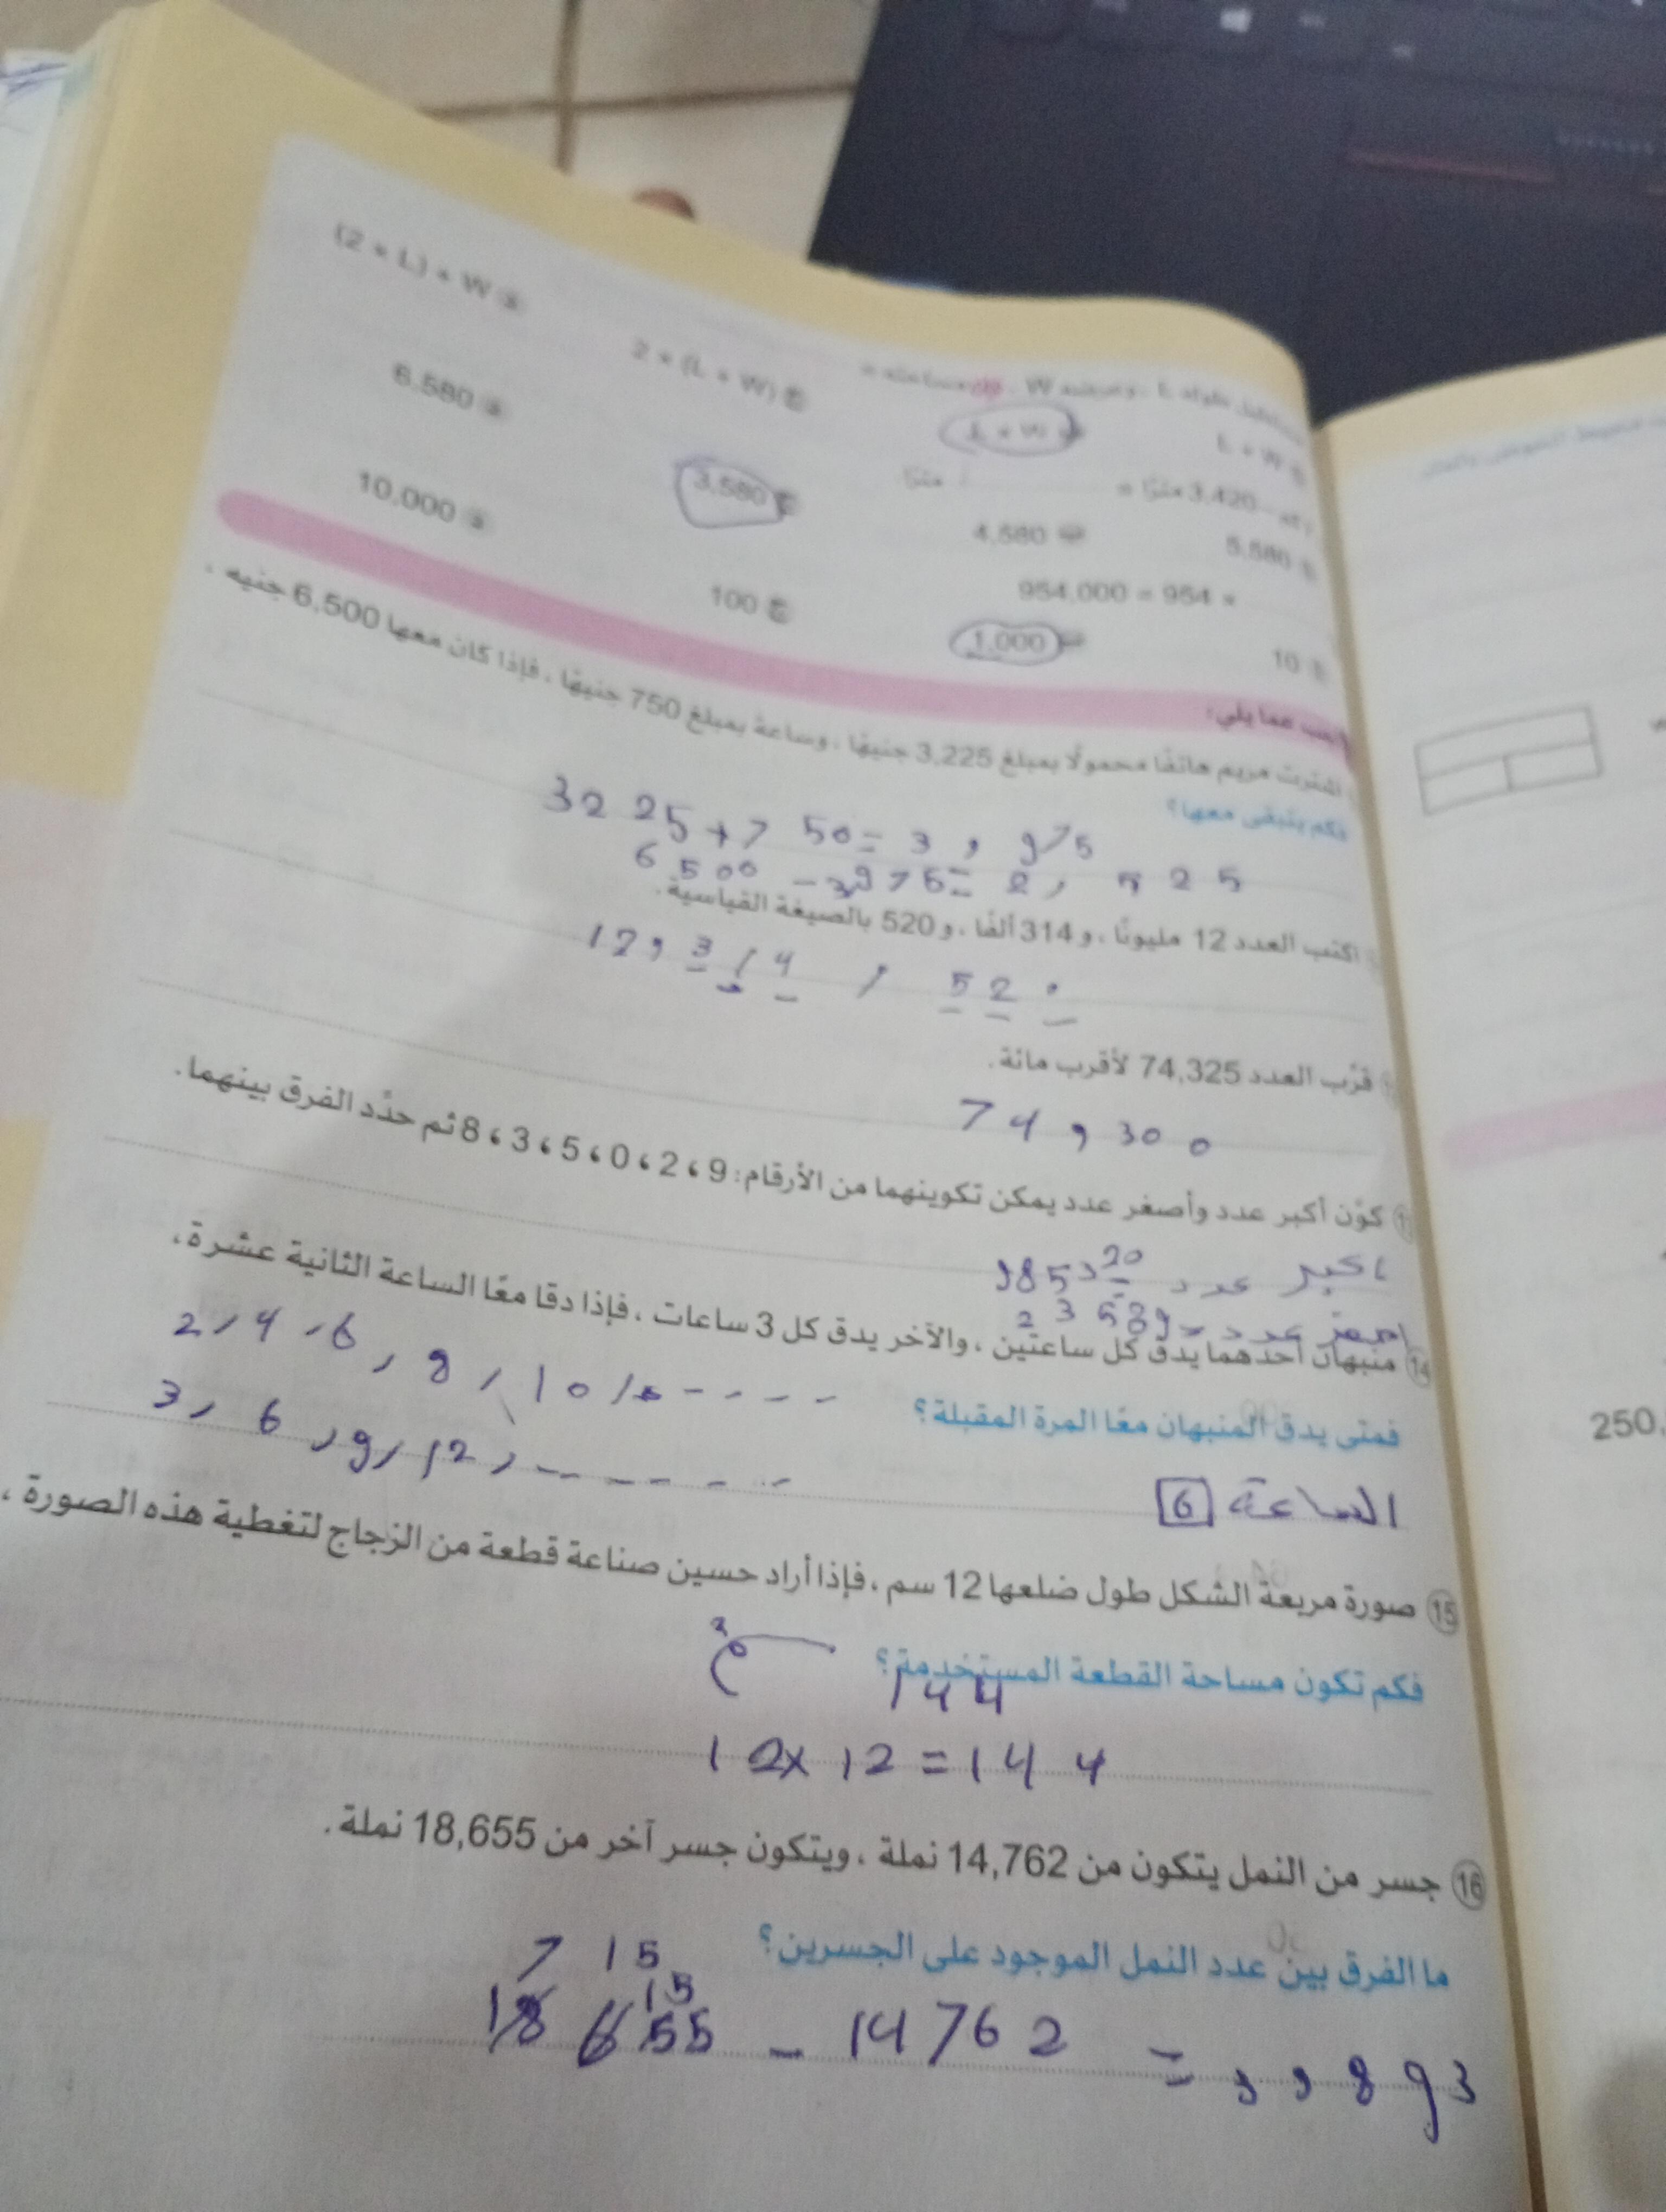 L + W
L × W
2 × (L + W) ج
(2 × L) + W د
3,420 مترًا =
مترًا
5,580
4,580 ب
3,580 ج
6,580 د
954,000 = 954 ×
10
1,000
100 ج
10,000 د
أجب عما يلي:
اشترت مريم هاتفًا محمولًا بمبلغ 3,225 جنيهًا، وساعة بمبلغ 750 جنيهًا، فإذا كان معها 6,500 جنيه،
فكم يتبقى معها؟
3225 + 750 = 3,975
6500 - 3975 = 2,525
اكتب العدد 12 مليونًا، و314 ألفًا، و520 بالصيغة القياسية.
12,314,520
قرّب العدد 74,325 لأقرب مائة.
74,300
كوّن أكبر عدد وأصغر عدد يمكن تكوينهما من الأرقام: 9 ، 2 ، 0 ، 5 ، 3 ، 8 ثم حدّد الفرق بينهما.
اكبر عدد
اصغر عدد
14 منبهان أحدهما يدق كل ساعتين، والآخر يدق كل 3 ساعات، فإذا دقا معًا الساعة الثانية عشرة،
2, 4, 6, 8, 10,
فمتى يدق المنبهان معًا المرة المقبلة؟
3, 6, 9, 12,
الساعة 6
15 صورة مربعة الشكل طول ضلعها 12 سم، فإذا أراد حسين صناعة قطعة من الزجاج لتغطية هذه الصورة،
فكم تكون مساحة القطعة المستخدمة؟
144
12 × 12 = 144
16 جسر من النمل يتكون من 14,762 نملة، ويتكون جسر آخر من 18,655 نملة.
ما الفرق بين عدد النمل الموجود على الجسرين؟
7 15
15
18655 - 14762 = 3,893
250,